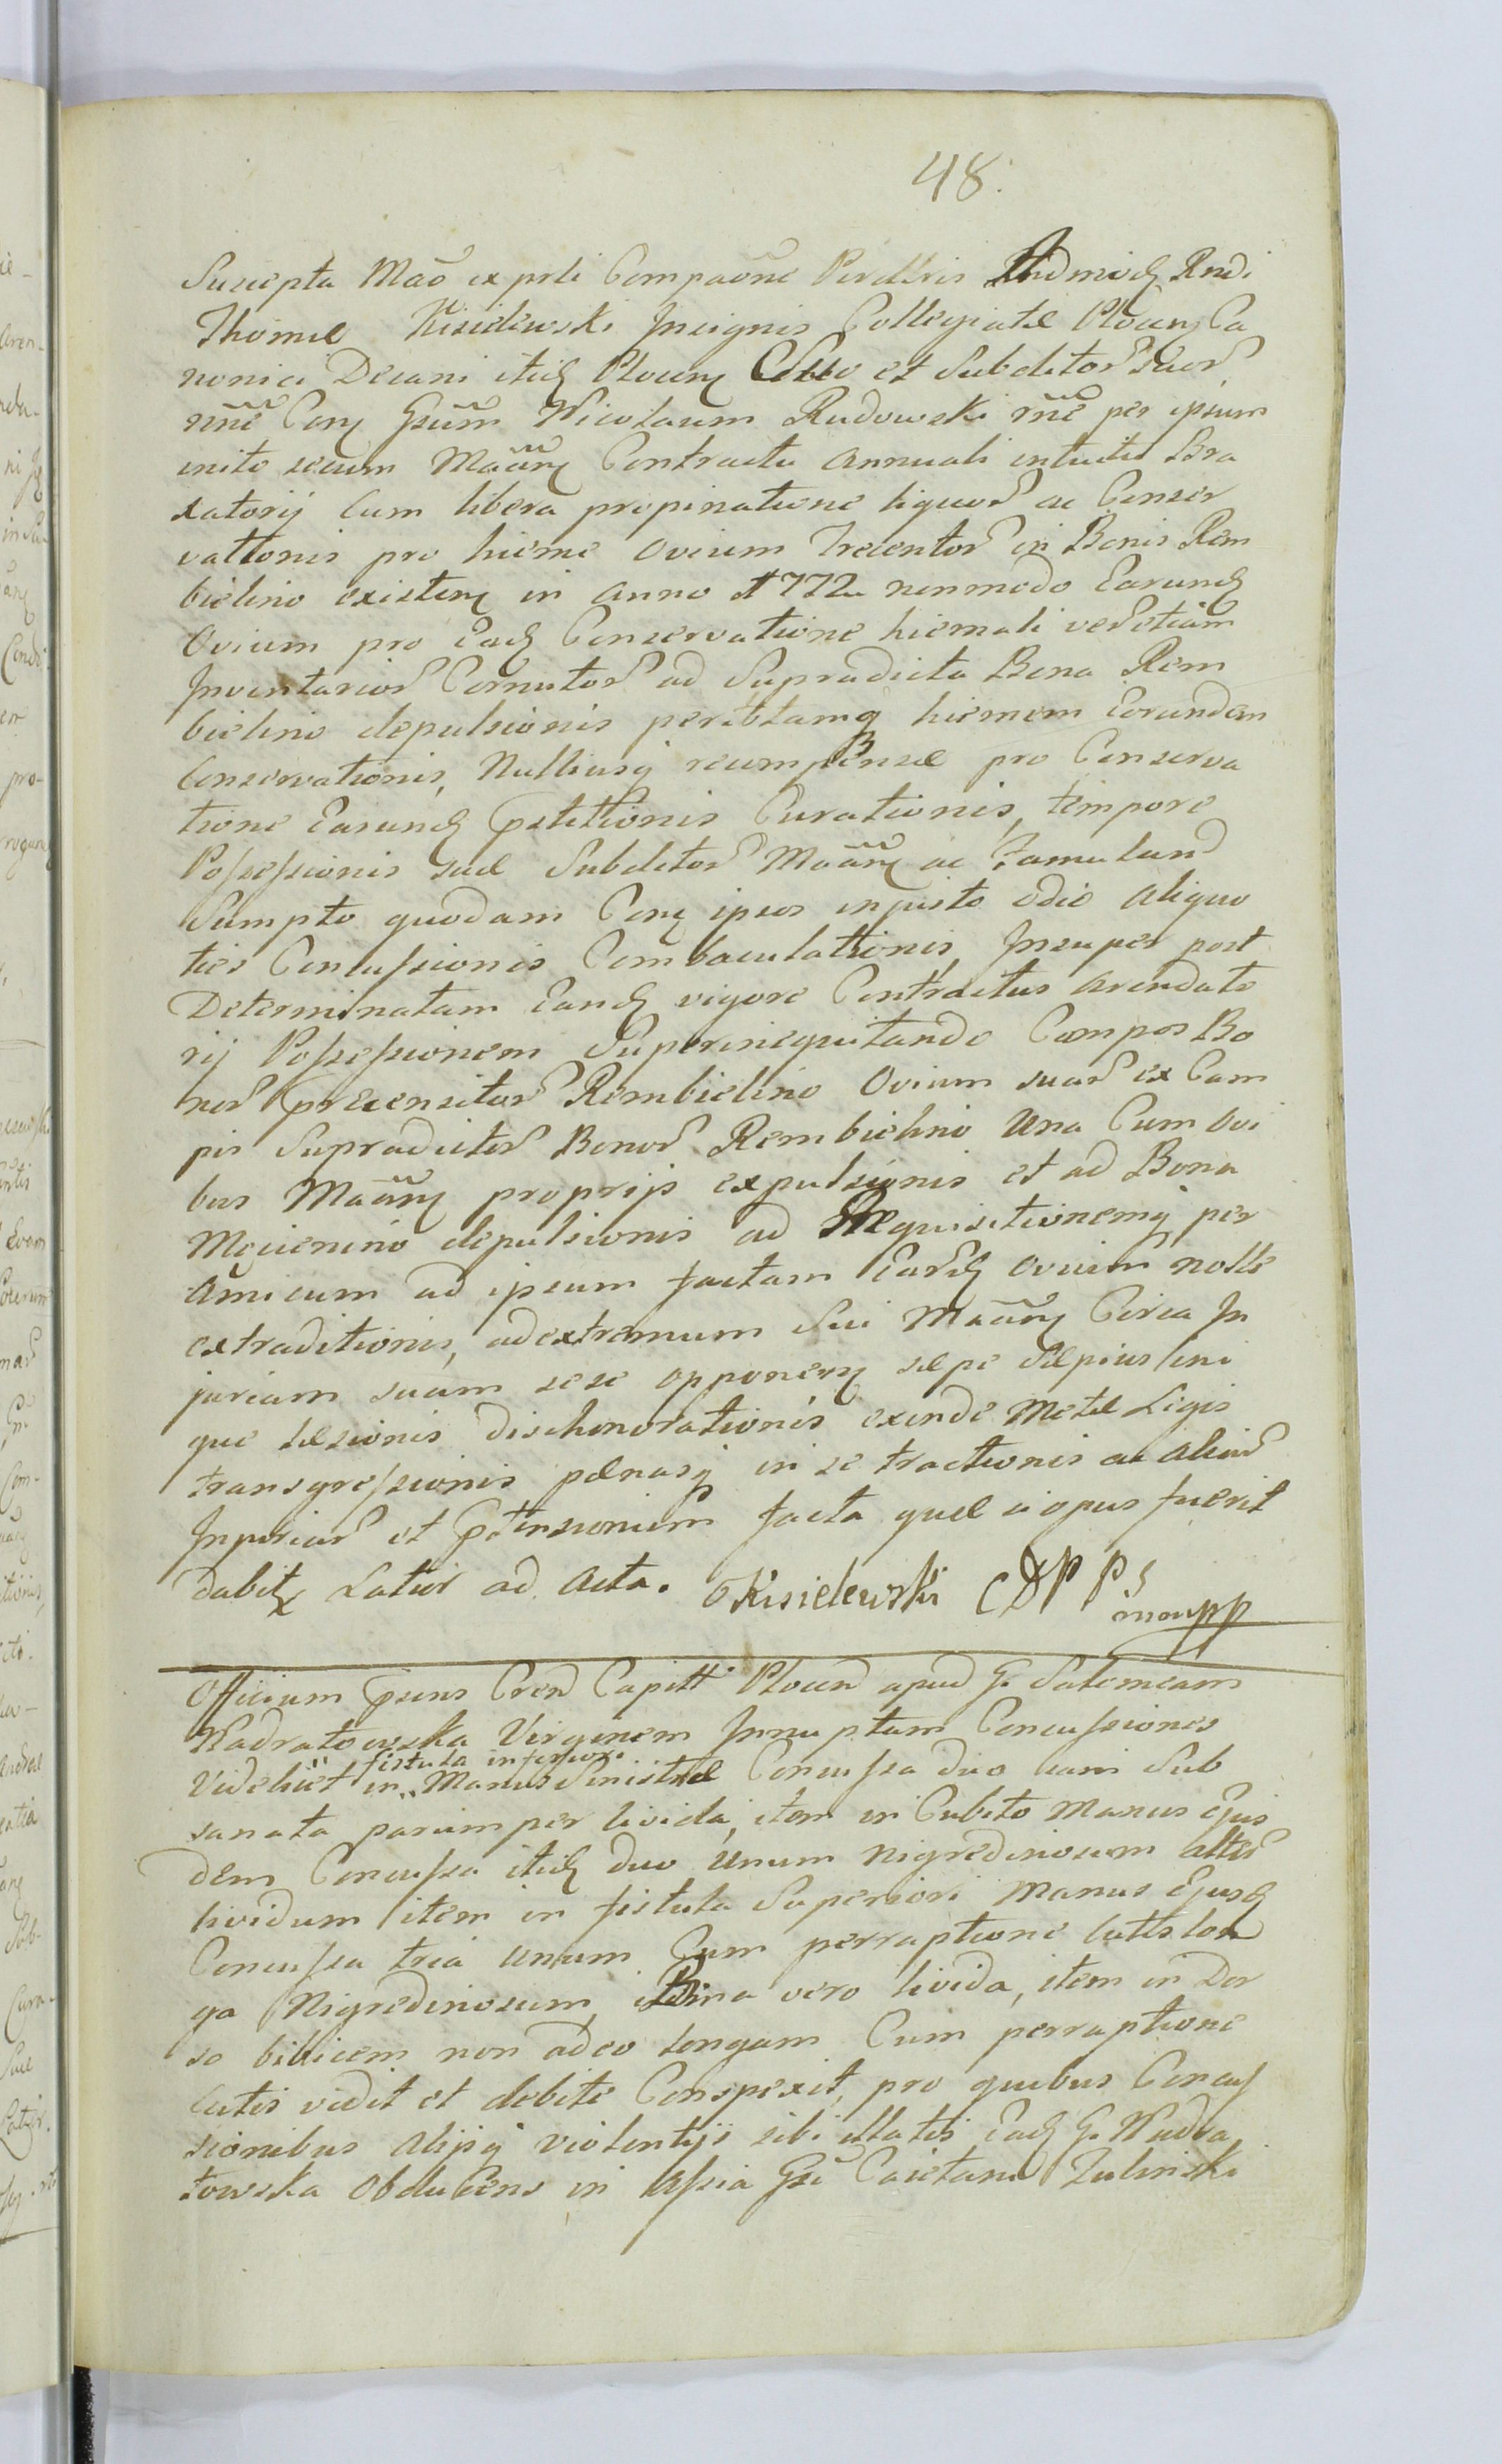 48.
Suscepta Mãõ ex prti Compaõne Perillris Admodꝫ Rndi
Thomæ Kisielewski Insignis Collegiatæ Plocenꝫ Ca
nonici Decani itidꝫ Plocenꝫ et Subditor Suor
nñe Conꝫ Gsũm Nicolaum Rudowski rñe per ipsum
inito secum Mããnꝫ Contractu annuali intuitu Bra
xatorij cum libera propinatione liquor ac Conser
vationis pro hieme Ovium Trecentor in Bonis Rem
bielino existenꝫ in anno 1772 nonmodo Earundꝫ
Ovium pro Eadꝫ Conservatione hiemali ver etiam
Inventarior Cornutor ad Supradicta Bona Rem
bielino depulsionis per illamq hiemem Eorundem
Conservationis, Nulliusq recompensæ pro Conserva
tione Earundꝫ Curationis, tempore
Possessionis suæ Subditor Mããnꝫ ac Famulan
Sumpto quodam Conꝫ ipsos injusto odio aliquo
ties Concussionis Combaculationis, Insuper post
Determinatam Eandꝫ vigore Contractus arendato
rij Possessionem Superinequitando Campos Bo
nor præcensitor Rembielino Ovium suar ex Cam
pis Supradictor Bonor Rembielino una Cum Ovi
bus Mããnꝫ proprijs expulsionis et ad Bona
Męcienino depulsionis ad Requisitionemq per
Amicum ad ipsum factam Eardꝫ Ovium nolle
extraditionis, ad extremum Sui Mããnꝫ Circa In
juriam suam sese opponenꝫ sæpe Sæpius ini
que læsionis dishonorationis exinde Metæ Legis
transgressionis pænasq in se tractionis ac aliar
Injuriar et Prtensionum facta quæ si opus fuerit
dabitꝫ Latior ad Acta. Kisielewski CDP P
manpp
Officium Præsens Cren Capitti Plocen apud G. Salomeam
Nadratowska Virginem Innuptam Concussiones
Videlicet in fistula inferiori Manus Sinistræ Concussa duo iam Sub
sanata parumper livida, item in Cubito Manus Ejus
dem Concussa itidꝫ duo unum nigredinosum alter
lividum item in fistula Superiori Manus Ejusdꝫ
Concussa tria unum Cum perruptione cutis lon
ga Nigredinosum, Bina vero livida, item in Dor
so bibicem non adeo longam Cum perruptione
cutis vidit et debite Conspexit, pro quibus Concus
sionibus alijsq violentijs sibi illatis Eadꝫ G. Nadra
towska obducens in assia Gsi Caietani Zulinski